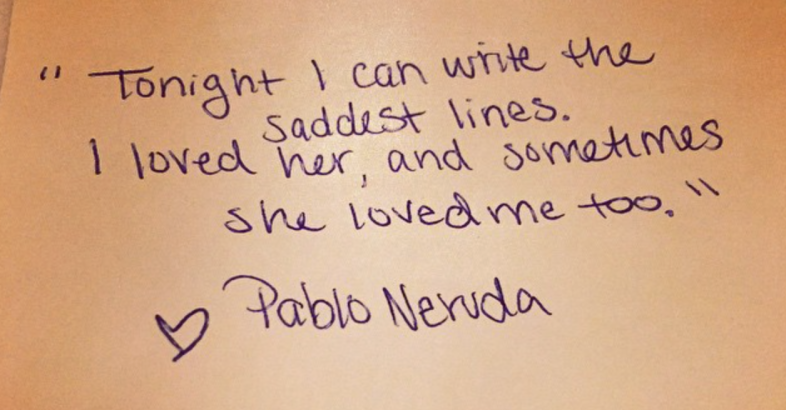 " Tonight I can write the
saddest lines.
I loved her, and sometimes
she loved me too."
♡ Pablo Neruda